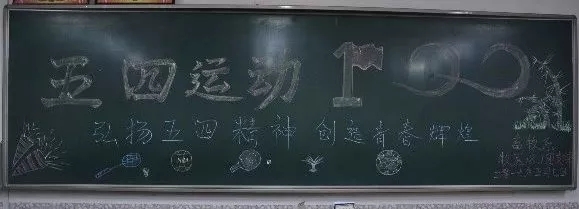 五四运动 100
弘扬五四精神 创造青春辉煌